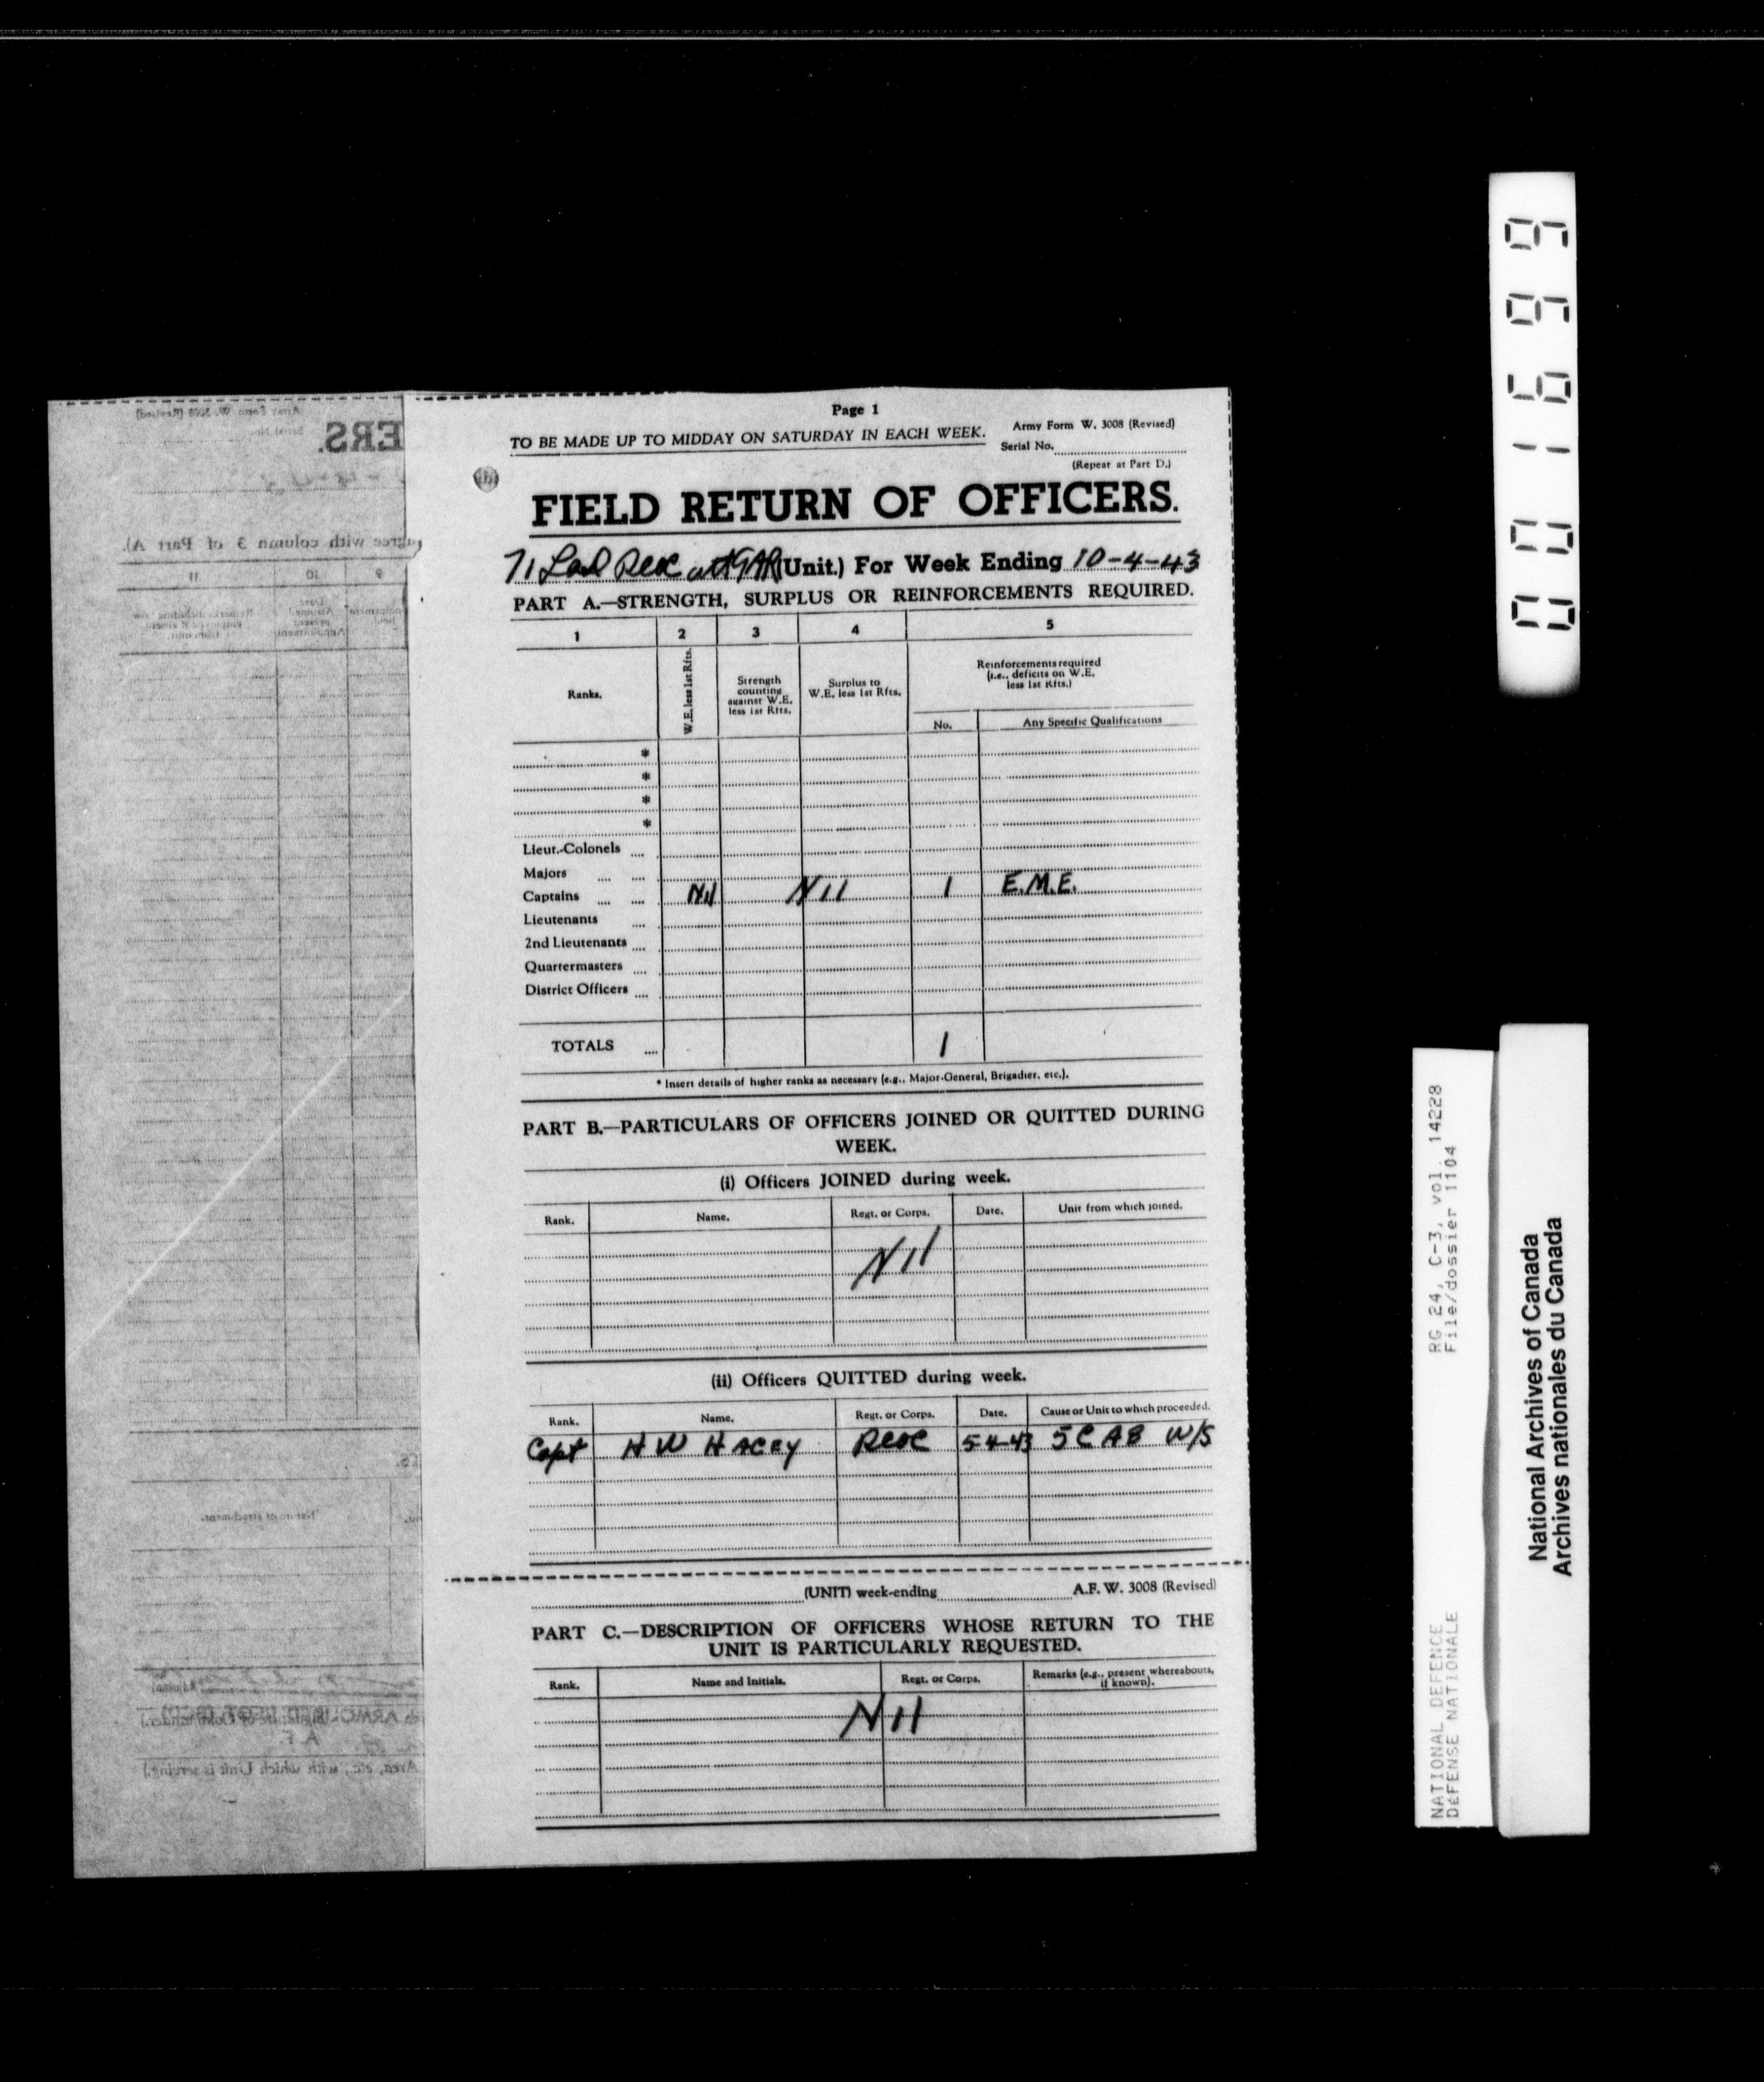 Page 1
TO BE MADE UP TO MIDDAY ON SATURDAY IN EACH WEEK.
Army Form W. 3008 (Revised)
Serial No.
(Repeat at Part D.)
FIELD RETURN OF OFFICERS.
71 Lad RCOC att GAR (Unit.) For Week Ending 10-4-43
PART A.—STRENGTH, SURPLUS OR REINFORCEMENTS REQUIRED.
1 2 3 4 5
Ranks.
W.E. less 1st Rfts.
Strength counting against W.E. less 1st Rfts.
Surplus to W.E. less 1st Rfts.
Reinforcements required (i.e., deficits on W.E. less 1st Rfts.)
No. Any Specific Qualifications
*
*
*
*
Lieut.-Colonels
Majors
Captains Nil Nil 1 E.M.E.
Lieutenants
2nd Lieutenants
Quartermasters
District Officers
TOTALS 1
* Insert details of higher ranks as necessary (e.g., Major-General, Brigadier, etc.).
PART B.—PARTICULARS OF OFFICERS JOINED OR QUITTED DURING
WEEK.
(i) Officers JOINED during week.
Rank. Name. Regt. or Corps. Date. Unit from which joined.
Nil
(ii) Officers QUITTED during week.
Rank. Name. Regt. or Corps. Date. Cause or Unit to which proceeded.
Capt H W HACEY RCOC 5-4-43 5 C A B W/S
(UNIT) week-ending A.F. W. 3008 (Revised)
PART C.—DESCRIPTION OF OFFICERS WHOSE RETURN TO THE
UNIT IS PARTICULARLY REQUESTED.
Rank. Name and Initials. Regt. or Corps. Remarks (e.g., present whereabouts, if known).
Nil
001699
RG 24, C-3, vol. 14228
File/dossier 1104
NATIONAL DEFENCE
DÉFENSE NATIONALE
National Archives of Canada
Archives nationales du Canada